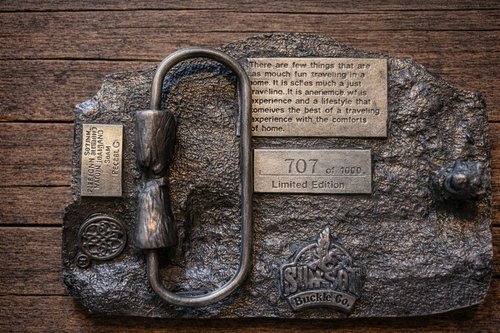 There are few things that are
as mouch fun traveling in a
home. It is sches much a just
traveling. It is aneriemce wf is
experience and a lifestyle that
comeives the best of a traveling
experience with the comforts
of home.
707 of 1000
Limited Edition
Buckle Co.